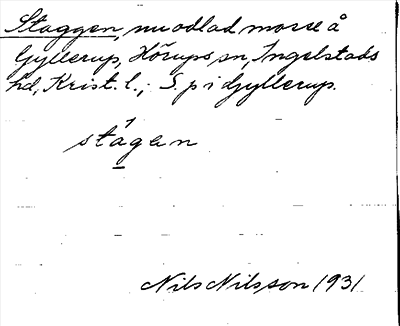 Staggen, nu odlad mosse å
Gyllerup, Hörups sn, Ingelstads
hd, Krist. l.; S. p i Gyllerup.
stágen
Nils Nilsson 1931